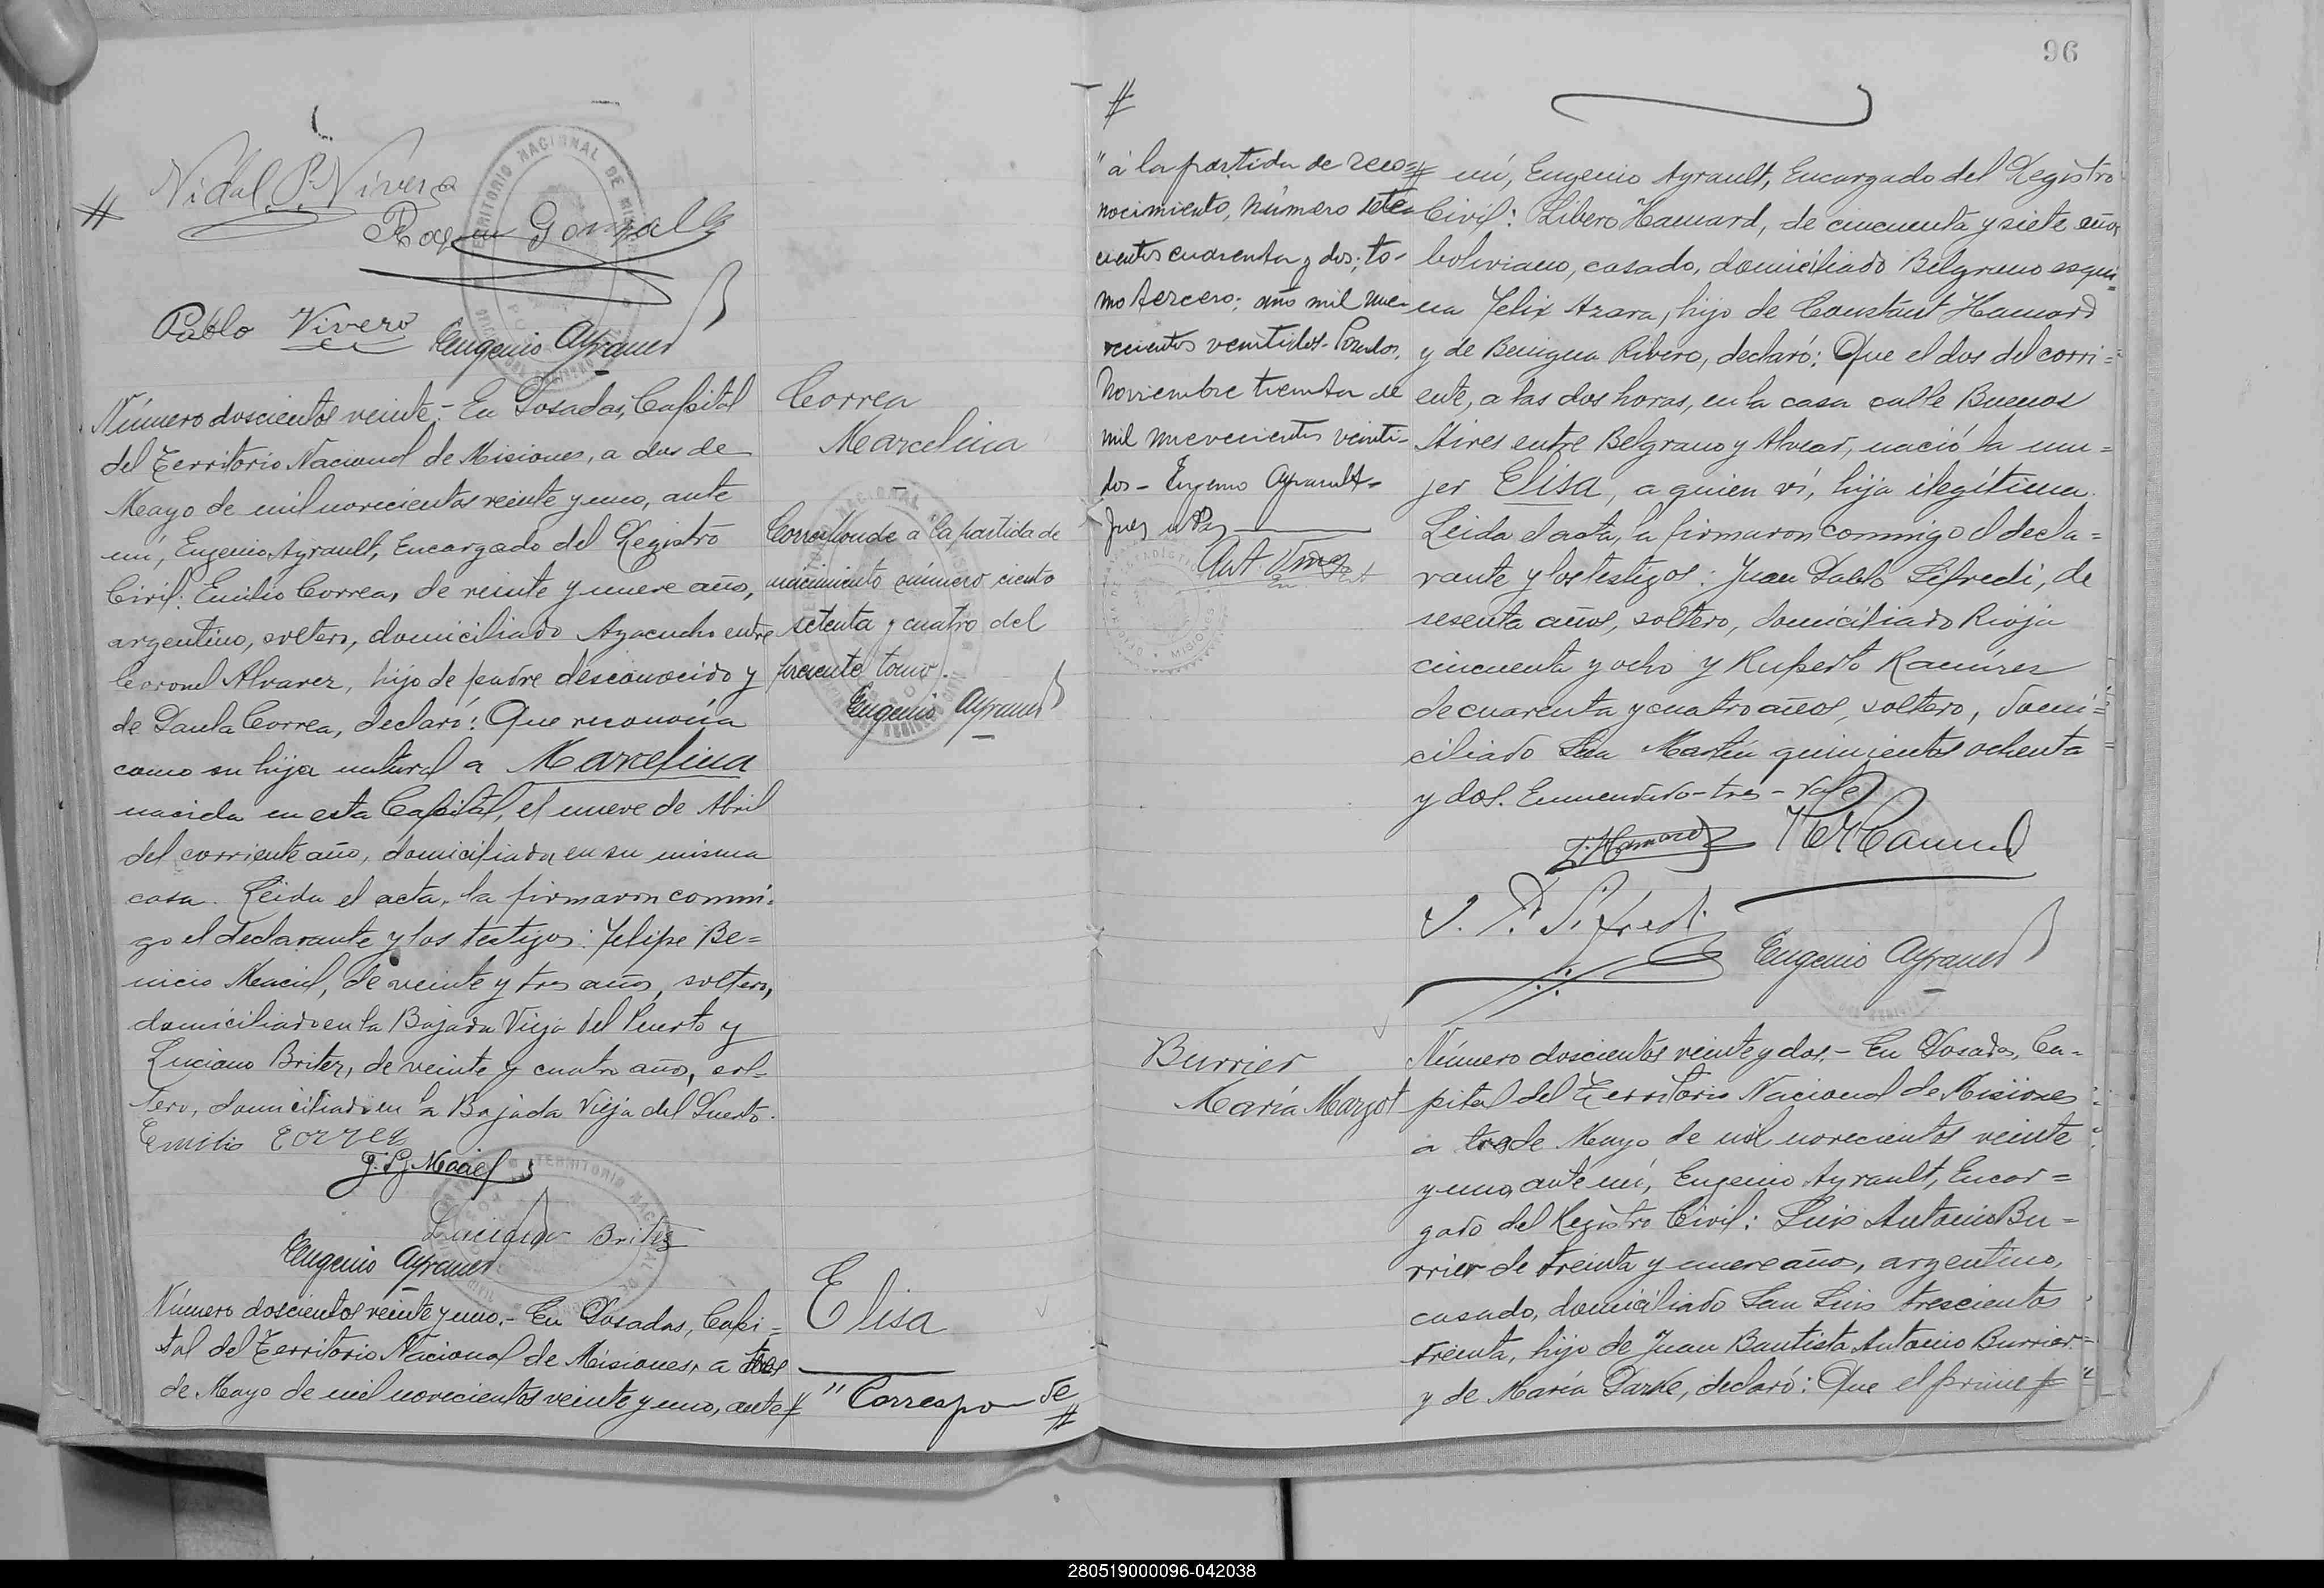 #
Vidal P. Vivero
Roque Gonzalez
Pablo Vivero
Eugenio Ayrault
Número doscientos veinte.- En Posadas, Capital
del Territorio Nacional de Misiones, a dos de
Mayo de mil novecientos veinte y uno, ante
mí, Eugenio Ayrault, Encargado del Registro
Civil: Emilio Correa, de veinte y nueve años,
argentino, soltero, domiciliado Ayacucho entre
Coronel Alvarez, hijo de padre desconocido y
de Paula Correa, declaró: Que reconocía
como su hija natural a Marcelina
nacida en esta Capital, el nueve de Abril
del corriente año, domiciliada en su misma
casa. Leida el acta, la firmaron conmi-
go el declarante y los testigos: Felipe Be=
nicio Maciel, de veinte y tres años, soltero,
domiciliado en la Bajada Vieja del Puerto y
Luciano Britez, de veinte y cuatro años, sol-
tero, domiciliado en la Bajada Vieja del Puerto.
Emilio Correa
Maciel
Luciano Britez
Eugenio Ayrault
Correa
Marcelina
Corresponde a la partida de
nacimiento número ciento
setenta y cuatro del
presente tomo.
Eugenio Ayrault
Número doscientos veinte y uno.- En Posadas, Capi=
tal del Territorio Nacional de Misiones, a tres
de Mayo de mil novecientos veinte y uno, ante #
Elisa
"Corresponde
#
96
#
"á la partida de reco=
nocimiento, número sete
cientos cuarenta y dos; to-
mo tercero; año mil nue-
vecientos veintidos- Posadas,
Noviembre treinta de
mil nuevecientos veinti-
dos- Eugenio Ayrault-
Juez de Paz
# mí, Eugenio Ayrault, Encargado del Registro
Civil: Libero Hamard, de cincuenta y siete años
boliviano, casado, domiciliado Belgrano esqui=
na Felix Azara, hijo de Constant Hamard
y de Benigna Ribero, declaró: Que el dos del corri=
ente, a las dos horas, en la casa calle Buenos
Aires entre Belgrano y Alvear, nació la mu=
jer Elisa, a quien ví, hija ilegítima.
Leida el acta, la firmaron conmigo el decla=
rante y los testigos: Juan Pablo Lefredi, de
sesenta años, soltero, domiciliado Rioja
cincuenta y ocho y Ruperto Ramírez
de cuarenta y cuatro años, soltero, domi=
ciliado San Martín quinientos ochenta
y dos. Enmendado-tres-Vale
L. Hamard
Eugenio Ayrault
Burrier
María Margot
Número doscientos veinte y dos.- En Posadas, Ca-
pital del Territorio Nacional de Misiones
a tres de Mayo de mil novecientos veinte
y uno, ante mí, Eugenio Ayrault, Encar=
gado del Registro Civil: Luis Antonio Bu=
rrier de treinta y nueve años, argentino,
casado, domiciliado San Luis trescientos
treinta, hijo de Juan Bautista Antonio Burrier
y de María Darke, declaró: Que el prime #
280519000096-042038